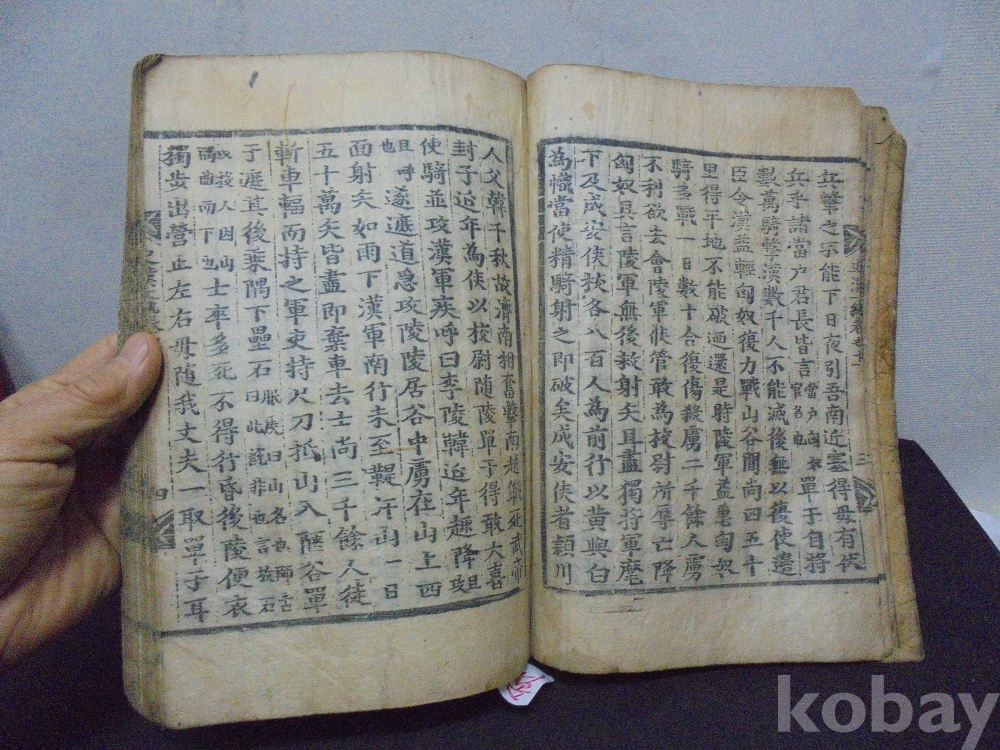 兵擊之不能下日夜引吾南近塞得毋有伏
兵乎諸當户君長皆言當户匈奴官名也單于自將
數萬騎擊漢數千人不能滅後無以復使邊
臣令漢益輕匈奴復力戰山谷間尚四五十
里得平地不能破迺還是時陵軍益急匈奴
騎多戰一日數十合復傷殺虜二千餘人虜
不利欲去會陵軍候管敢為校尉所辱亡降
匈奴具言陵軍無後救射矢且盡獨將軍麾
下及成安侯校各八百人為前行以黃與白
為幟當使精騎射之即破矣成安侯者穎川
人父韓千秋故濟南相奮擊南越戰死武帝
封子延年為侯以校尉隨陵單于得敢大喜
使騎並攻漢軍疾呼曰李陵韓延年趣降
且呼也遂遮道急攻陵陵居谷中虜在山上四
面射矢如雨下漢軍南行未至鞮汗山一日
五十萬矢皆盡即棄車去士尚三千餘人徒
斬車輻而持之軍吏持尺刀抵山入陿谷單
于遮其後乘隅下壘石服虔曰山名也師古曰此說非也言放石
以投人因山隅曲而下也士卒多死不得行昏後陵便衣
獨步出營止左右毋隨我丈夫一取單于耳
三
四
kobay